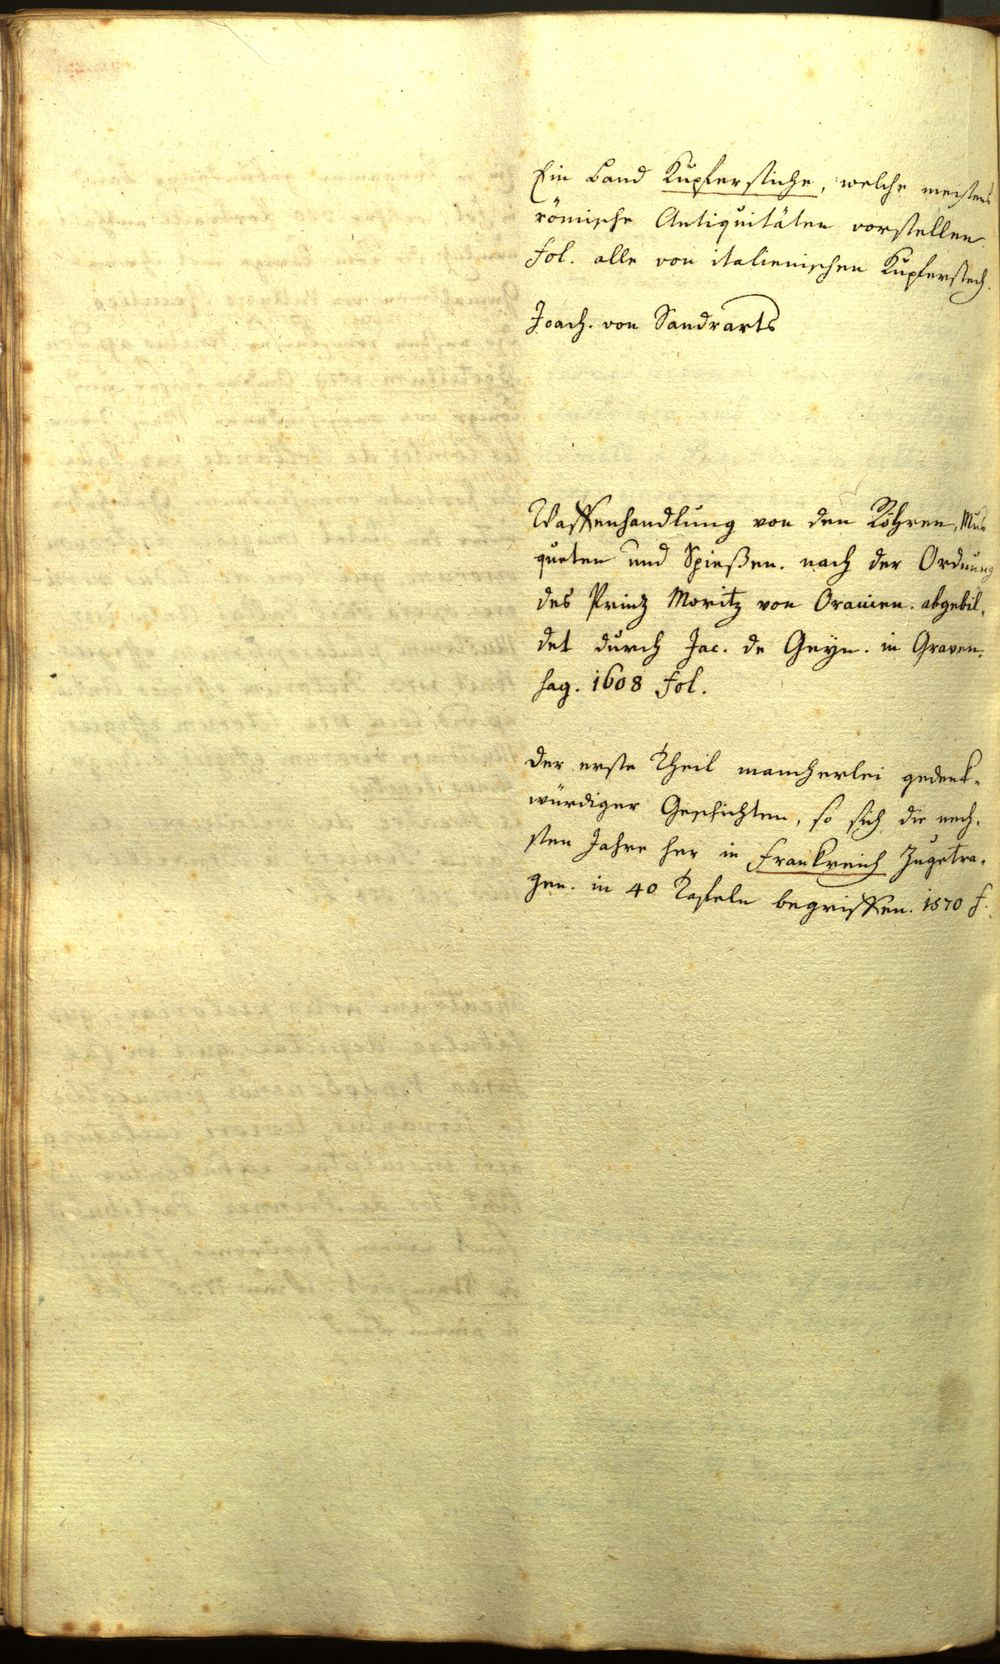 Ein Band Kupferstiche, welche meistens
römische Antiquitäten vorstellen.
fol. alle von italienischen Kupferstech.
Joach. von Sandrarts
Waffenhandlung von den Röhren, Mus
queten und Spießen. nach der Ordnung
des Prinz Moritz von Oranien. abgebil,
det durch Jac. de Geyn. in Graven.
hag. 1608 fol.
Der erste Theil mancherlei gedenk-
würdiger Geschichten, so sich die nech-
sten Jahre her in Frankreich Zugetra-
gen. in 40 Tafeln begriffen. 1570 f.